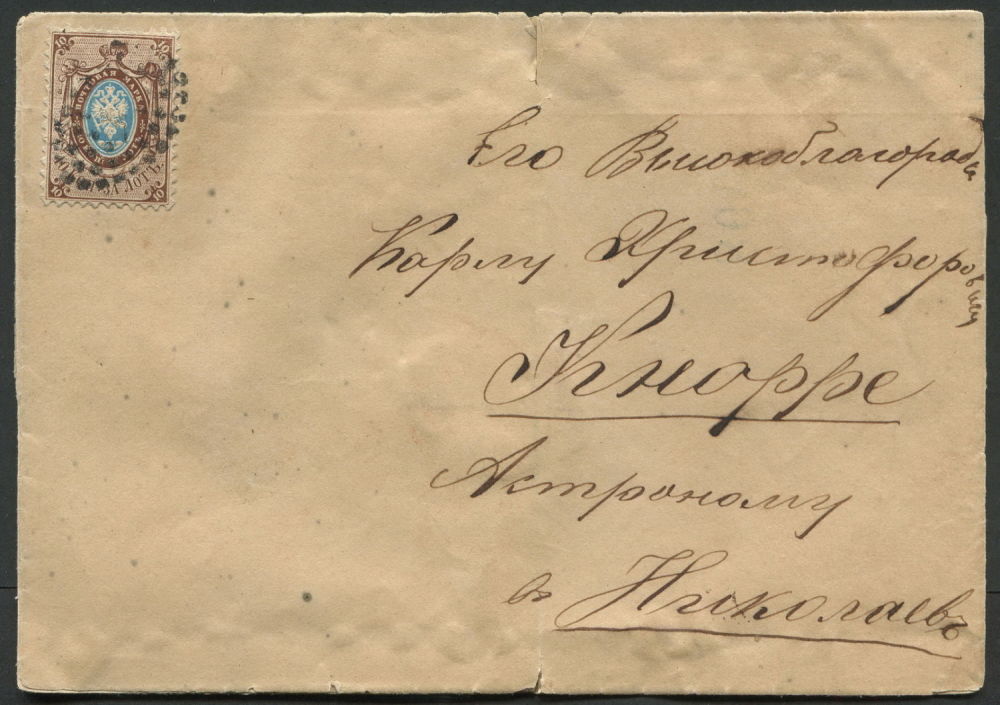 10 10
ПОЧТОВАЯ МАРКА
10 КОП.
ЛОТЪ
10 10
Его Высокоблагородію
Карлу Христофоровичу
Кнорре
Астроному
въ Николаевъ